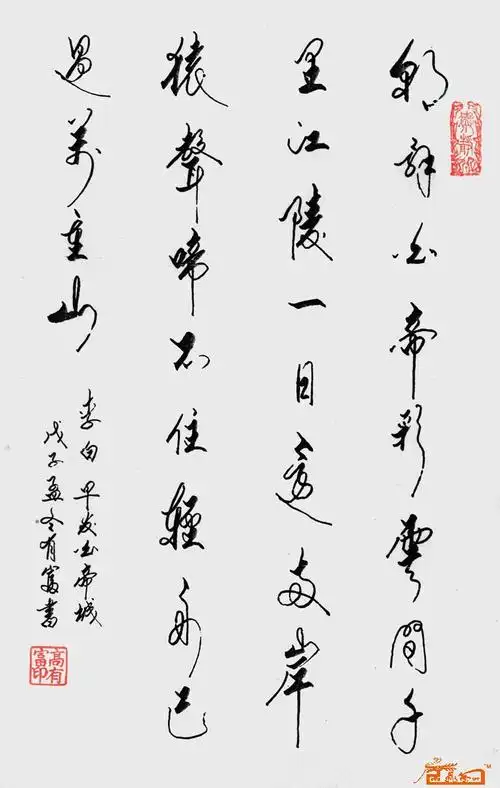 朝辭白帝彩雲間千
里江陵一日還兩岸
猿聲啼不住輕舟已
過萬重山
李白早发白帝城
戊子孟冬有富書
高有富印